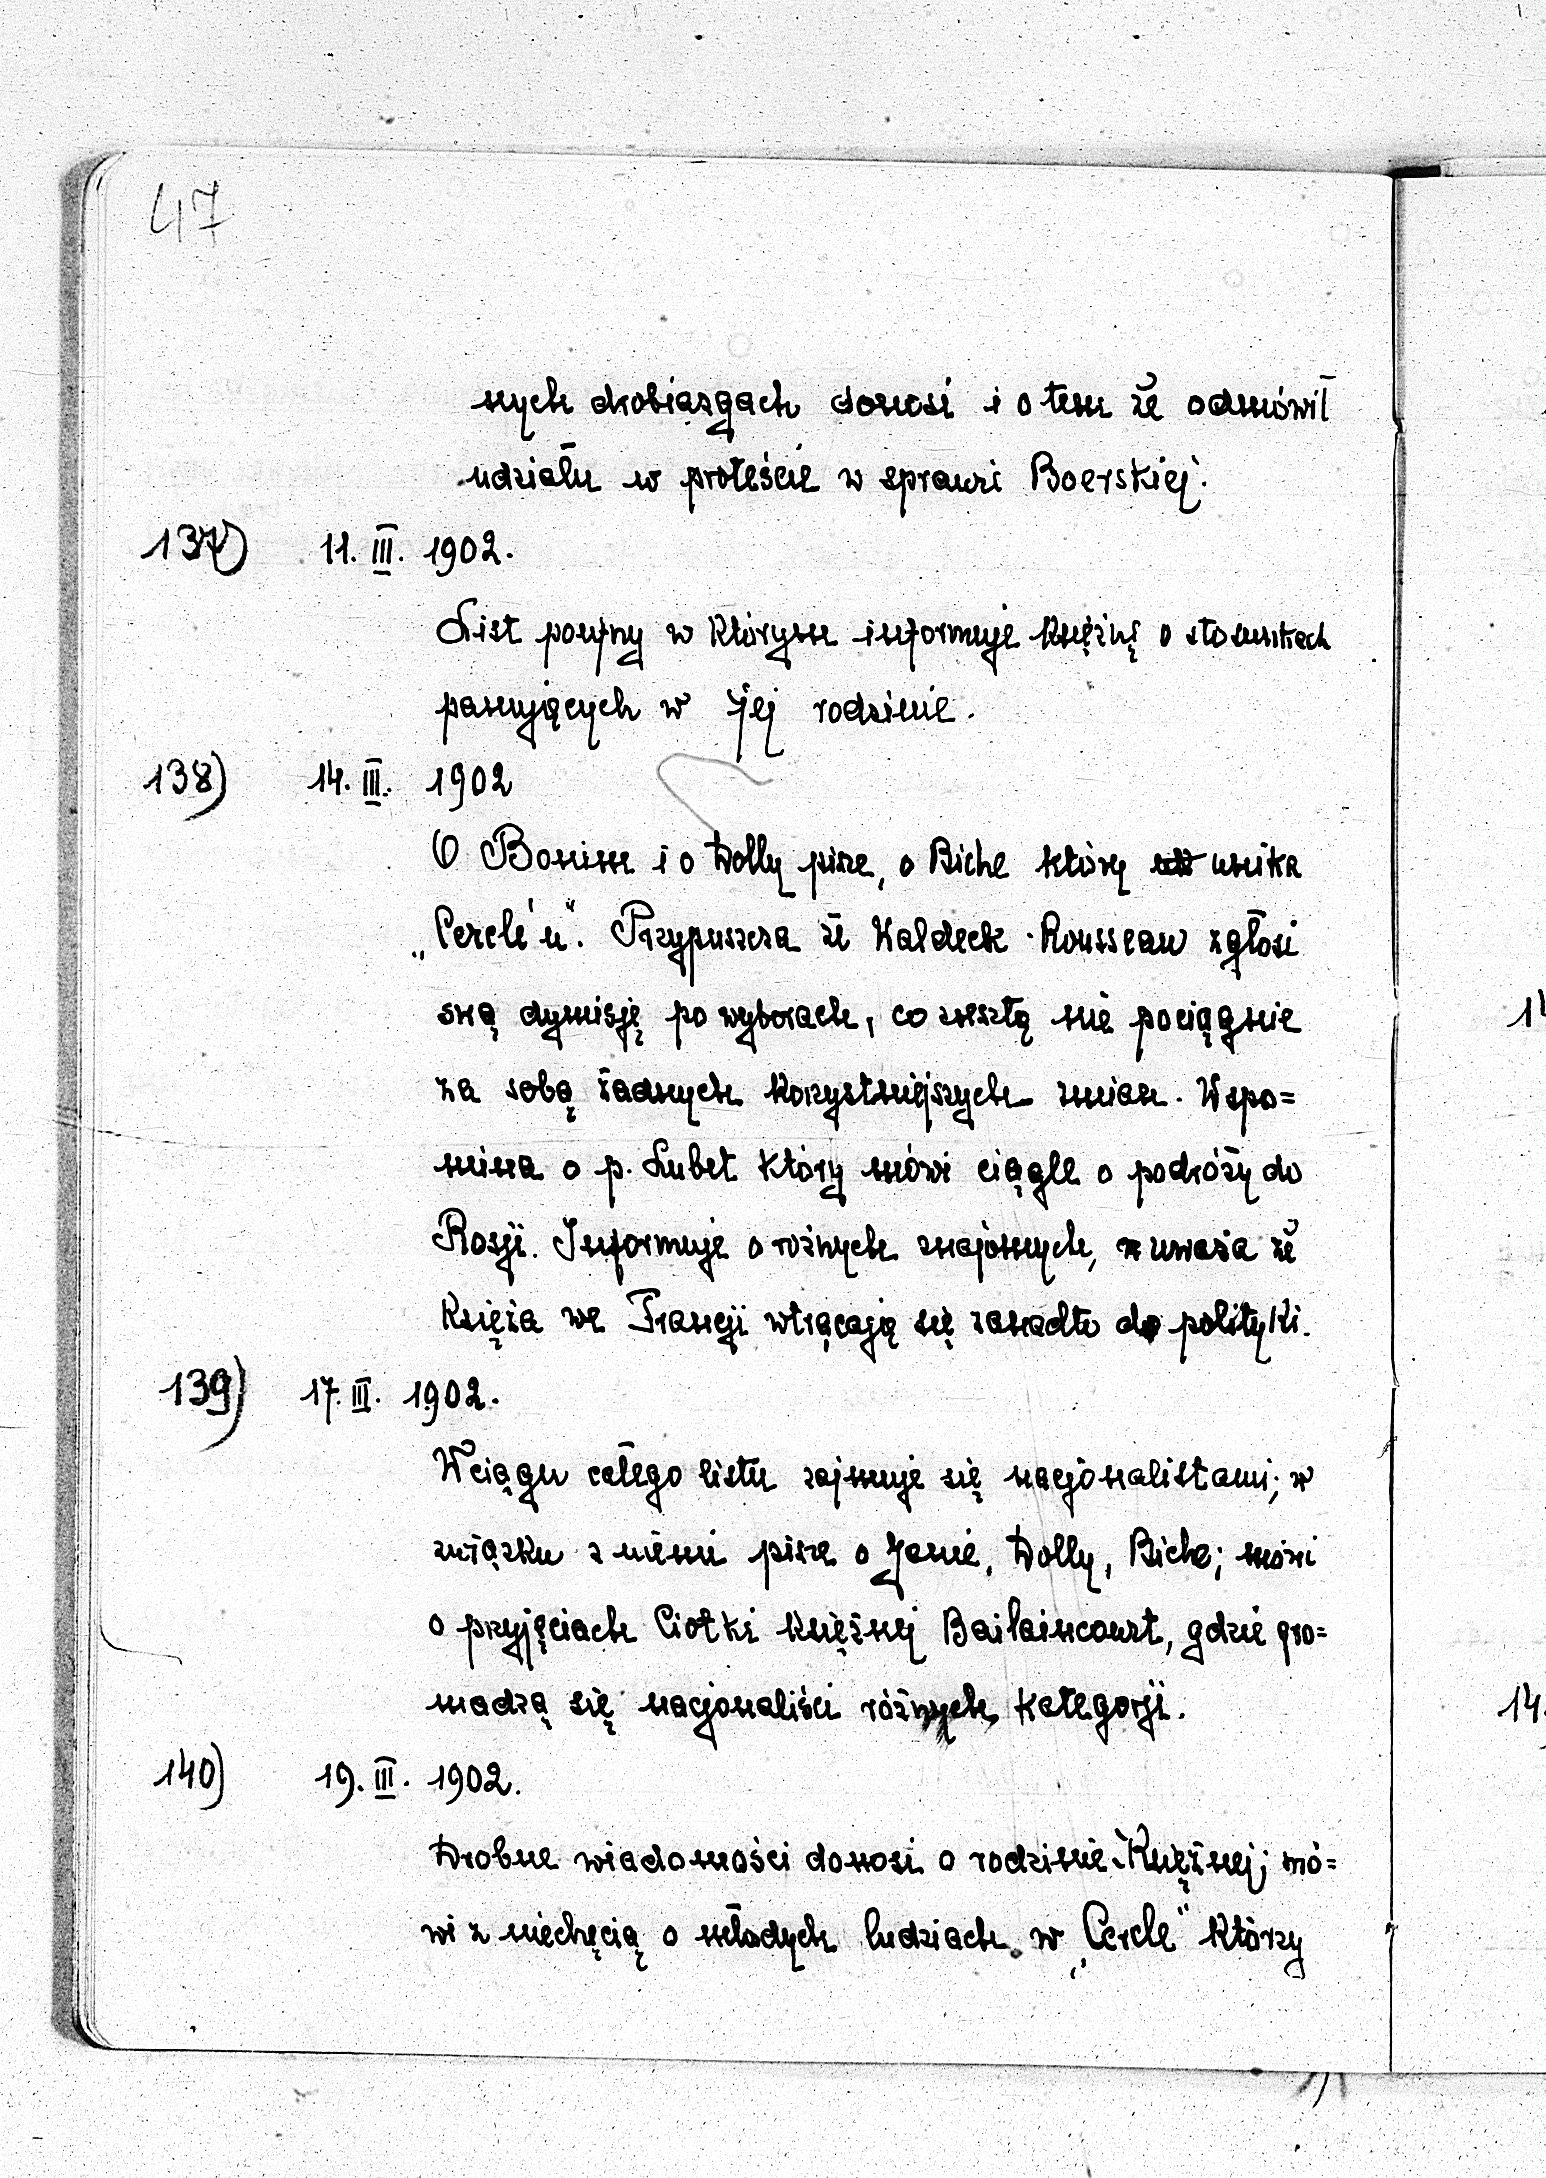 47
nych drobiazgach donosi i o tem że odmówił
udziału w proteście w sprawi Boerskiej.
137) 11. III. 1902.
List poufny w którym informuje księżnę o stosunkach
panujących w Jej rodzinie.
138) 14. III. 1902
O Bonim i o Dolly pisze, o Biche który unika
„Cercle'u". Przypuszcza że Waldeck-Rousseau zgłosi
swą dymisję po wyborach, co zresztą nie pociągnie
za sobą żadnych korzystniejszych zmian. Wspo=
mina o p. Lubet który mówi ciągle o podróży do
Rosji. Informuje o różnych znajomych, uważa że
Księża we Francji wtrącają się zanadto do polityki.
139) 17. III. 1902.
W ciągu całego listu zajmuje się nacjonalistami; w
związku z niemi pisze o Janie, Dolly, Biche; mówi
o przyjęciach Ciotki księżnej Bailaincourt, gdzie gro=
madzą się nacjonaliści różnych kategorji.
140) 19. III. 1902.
Drobne wiadomości donosi o rodzinie Księżnej; mó=
wi z niechęcią o młodych ludziach w „Cercle" którzy
14
14.